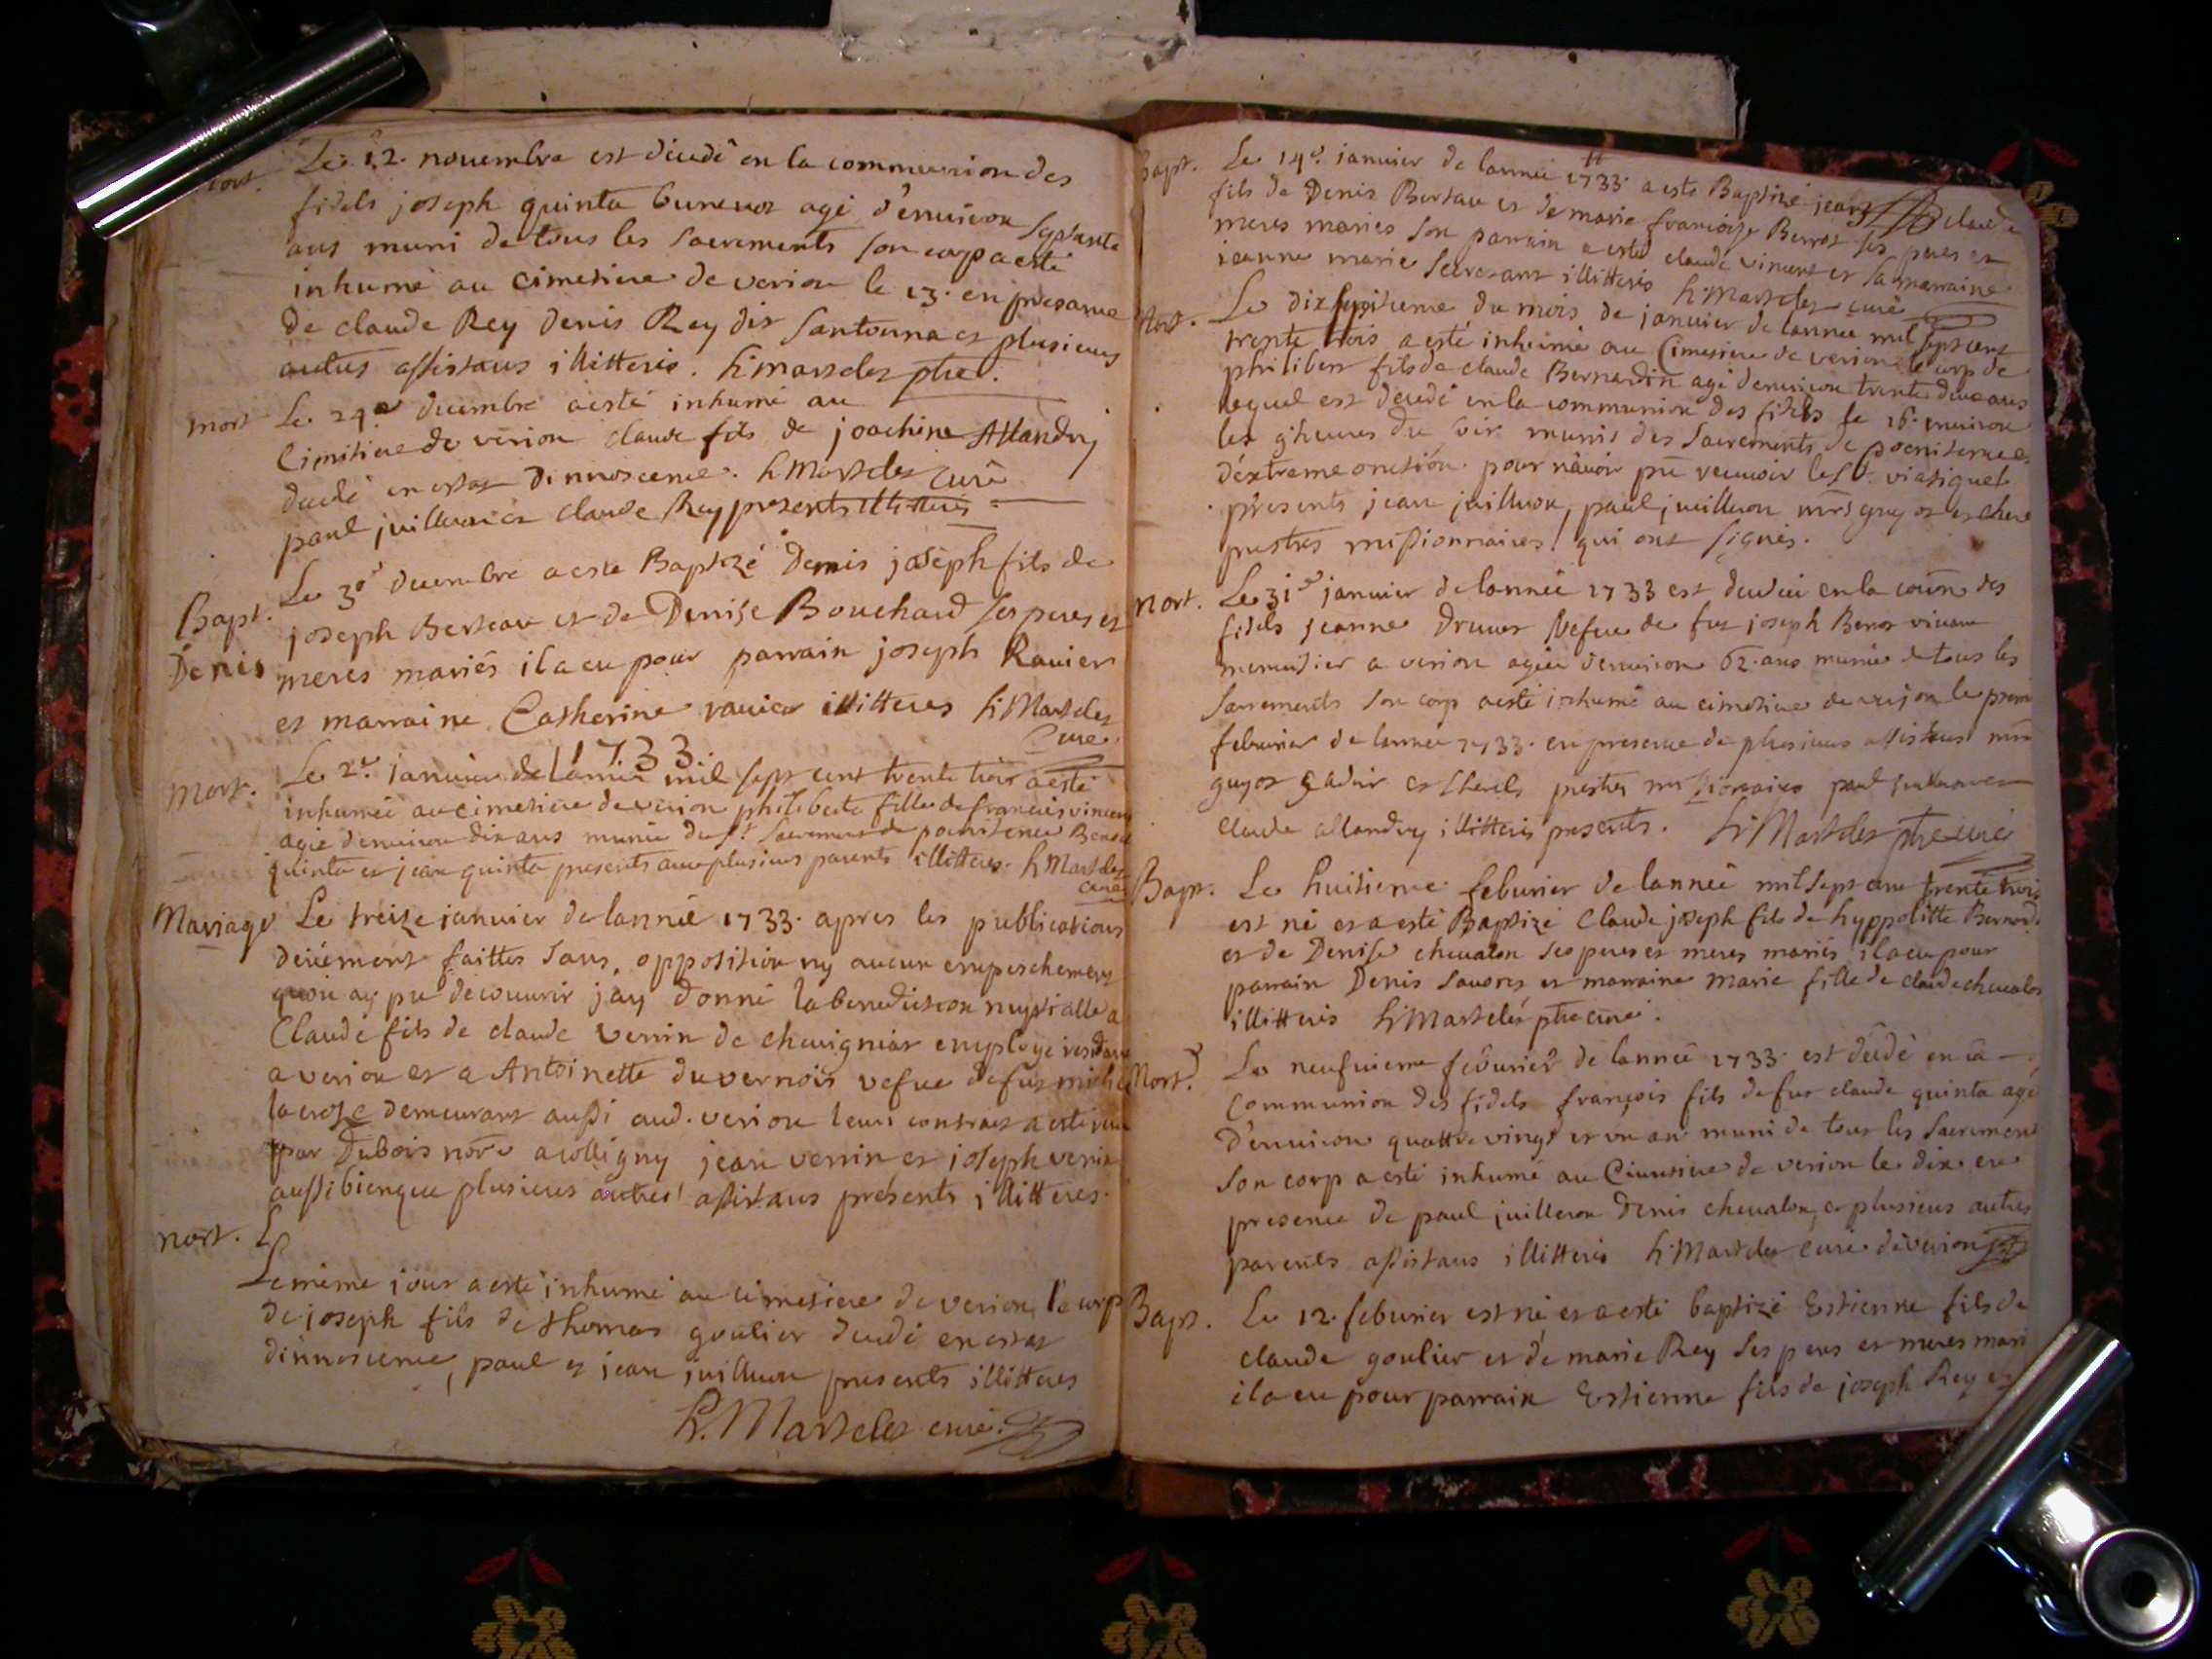 mort.
Le 12. nouembre est décédé en la communion des
fidels joseph quinta agé d'enuiron septante
ans muni de tous les sacrements son corp a esté
inhumé au cimetiere de verion le 13. en presance
de claude Rey denis Rey dit santonna et plusieurs
autres assistans illitteris. h. martelez ptre.
mort
Le 29e decembre a esté inhumé au
Cimitiere de verion claude fils de joachim Allandry
decedé en estat dinnoscence. h Martelez curé
paul juilleron et claude Rey presents illitteris
Bapt.
Denis
Le 30e decembre a este Baptizé Denis joseph fils de
joseph Berteau et de Denise Bouchard ses peres et
meres mariés il a eu pour parrain joseph Ravier
et marraine Catherine ravier illitteres h. Martelez
Curé
1733.
Mort.
Le 2e. januier de lannée mil sept cent trente trois a esté
inhumée au cimetiere de verion philiberte fille de francois vincent
agée denuiron dix ans munie du St. sacrement de poenitence
quinta et jean quinta presents aue plusieurs parents illitteres. h Martelez
curé
Mariage
Le treize januier de lannée 1733. apres les publications
deüement faittes sans opposition ny aucun empeschement
quon ay pu decouurir jay donné la benediction nuptialle a
Claude fils de claude verrin de cheuigniat employé residant
a verion et a Antoinette duvernois vefue de fut
lacroze demeurant aussi aud. verion leur contract a esté
par Dubois nore a colligny jean verrin et joseph verrin
aussi bien que plusieurs autres assistans présents illitteres.
mort.
L
Le même jour a esté inhumé au cimetiere de verion le corp
de joseph fils de thomas goulier decedé en estat
dinnoscence, paul et jean juilleron presents illitteres
h. Martelez curé.
Bapt.
Le 14e. januier de lannée 1733. a esté Baptizé jean claude
fils de Denis Bertau et de marie françoise Berrot ses peres et
meres mariés son parrain a esté claude vincent et sa marraine
jeanne marie illitteris h. Martelez curé
Mort.
Le dixseptieme du mois de januier de lannée mil sept cent
trente trois a esté inhumé au Cimetiere de verion le corp de
philibert fils de claude Bernardin agé denuiron trente deux ans
lequel est decedé en la communion des fidels le 16. enuiron
les 9 heures du soir munis des sacrements de poenitence et
déxtreme onction. pour nâuoir pû receuoir le St. viatique
presents jean juilleron, paul juilleron mrs guyot et
prestres missionnaires qui ont signés.
Mort.
Le 31e januier de lannée 1733 est decedée en la coïon des
fidels jeanne vefue de fut joseph Berrot viuant
menuisier a verion agée denuiron 62. ans munie de tous les
sacrements son corp a esté inhumé au cimetiere de verion le premier
februrier de lannée 1733. en presence de plusieurs assistans mrs
guyot et prestres missionnaires paul juilleron
claude allandry illitteris presents. h. Martelez ptre curé
Bapt.
Le huitieme februrier de lannée mil sept cent trente trois
est né et a esté Baptizé Claude joseph fils de hyppolitte Bernard
et de Denise cheualon ses peres et meres mariés il a eu pour
parrain Denis et marraine marie fille de claude cheualon
illitteris h. Martelés ptre curé.
Mort.
Le neufuieme féburier de lannée 1733. est decedé en la
communion des fidels françois fils de fut claude quinta agé
d'enuiron quattre vingt et un an muni de tous les sacrement
son corp a esté inhumé au Cimetiere de verion le dix en
presence de paul juilleron denis cheualon, et plusieurs autres
parents assistans illitteris h. Martelez curé de verion
Bapt.
Le 12. feburier est né et a esté baptizé Estienne fils de
claude goulier et de marie Rey ses peres et meres mari
il a eu pour parrain Estienne fils de joseph Rey et